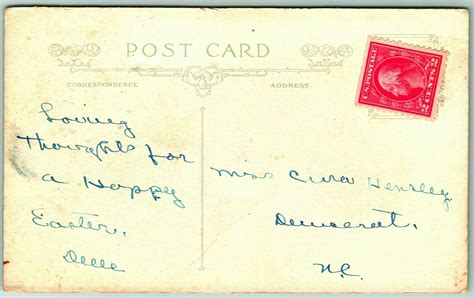 POST CARD
CORRESPONDENCE
ADDRESS
U.S. POSTAGE
2 CENTS 2
Loving
Thoughts for
a Happy
Easter,
Delle
Miss Cora Hensley,
Democrat,
N.C.